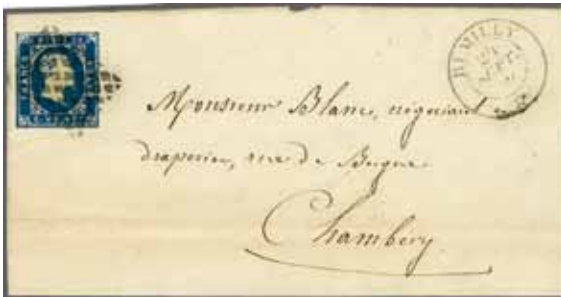 RUMILLY
Monsieur Blanc, négociant en
draperies, rue de Boigne
Chambéry